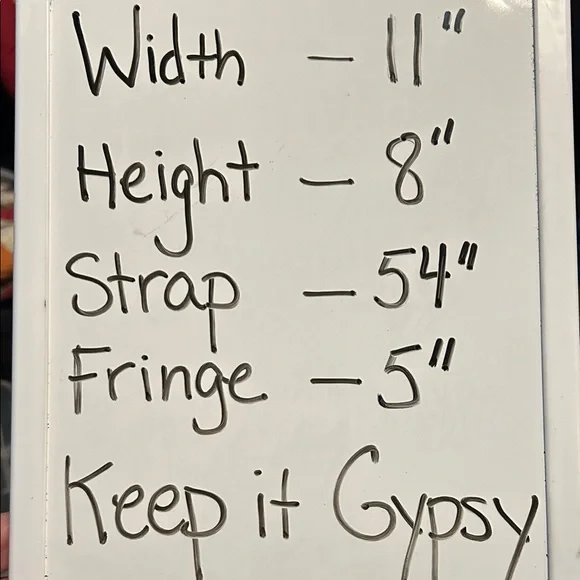 Width - 11"
Height - 8"
Strap - 54"
Fringe - 5"
Keep it Gypsy